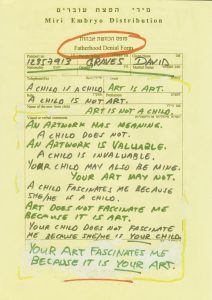 מירי הפצת עוברים
Miri Embryo Distribution
טופס הכחשת אבהות
Fatherhood Denial Form
12857913 GRAVES DAVID
A CHILD IS A CHILD. ART IS ART.
A CHILD IS NOT ART.
ART IS NOT A CHILD.
AN ARTWORK HAS MEANING.
A CHILD DOES NOT.
AN ARTWORK IS VALUABLE.
A CHILD IS INVALUABLE.
YOUR CHILD MAY ALSO BE MINE.
YOUR ART MAY NOT.
A CHILD FASCINATES ME BECAUSE
SHE/HE IS A CHILD.
ART DOES NOT FASCINATE ME
BECAUSE IT IS ART.
YOUR CHILD DOES NOT FASCINATE
ME BECAUSE SHE/HE IS YOUR CHILD.
YOUR ART FASCINATES ME
BECAUSE IT IS YOUR ART.